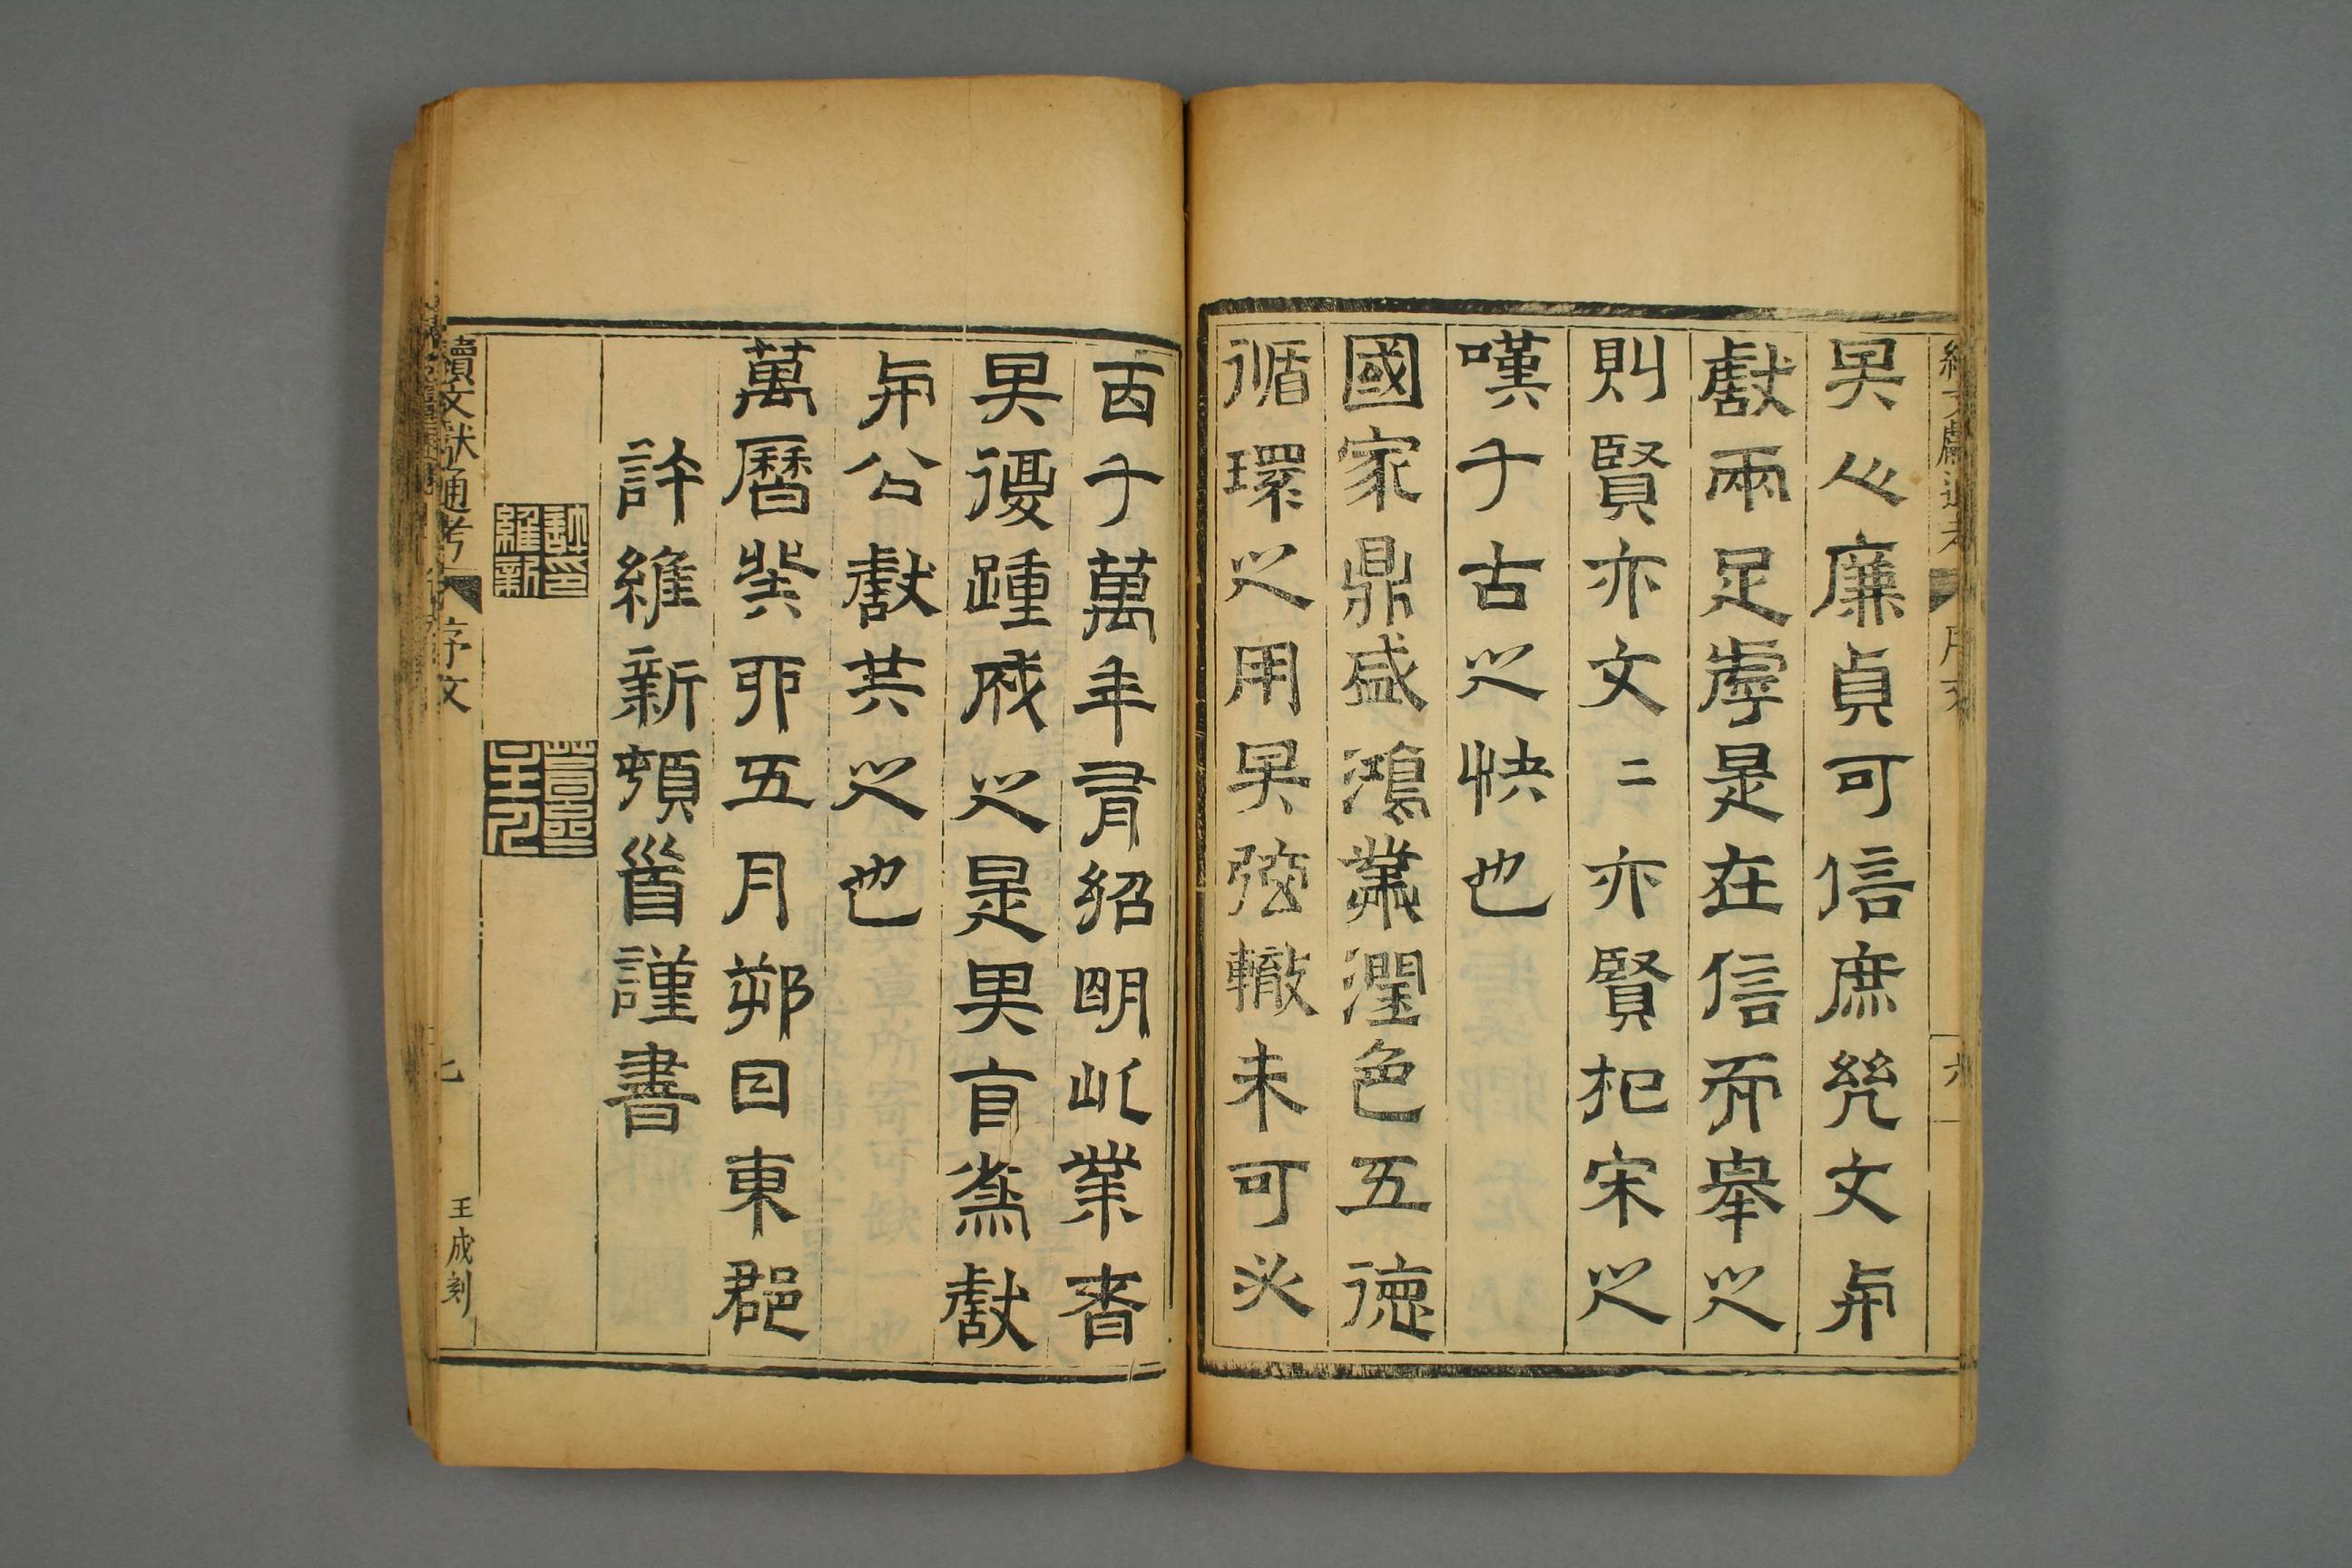 續文獻通考 序文 六
其心廉貞可信庶幾文與
獻兩足虖是在信而舉之
則賢亦文二亦賢杞宋之
嘆千古之快也
國家鼎盛鴻業潤色五德
循環之用其弦轍未可必
百千萬年有紹明此業者
其復踵成之是獻
與公獻共之也
萬曆癸卯五月朔日東郡
許維新頓首謹書
許印維新
續文獻通考 序文 七 王成刻